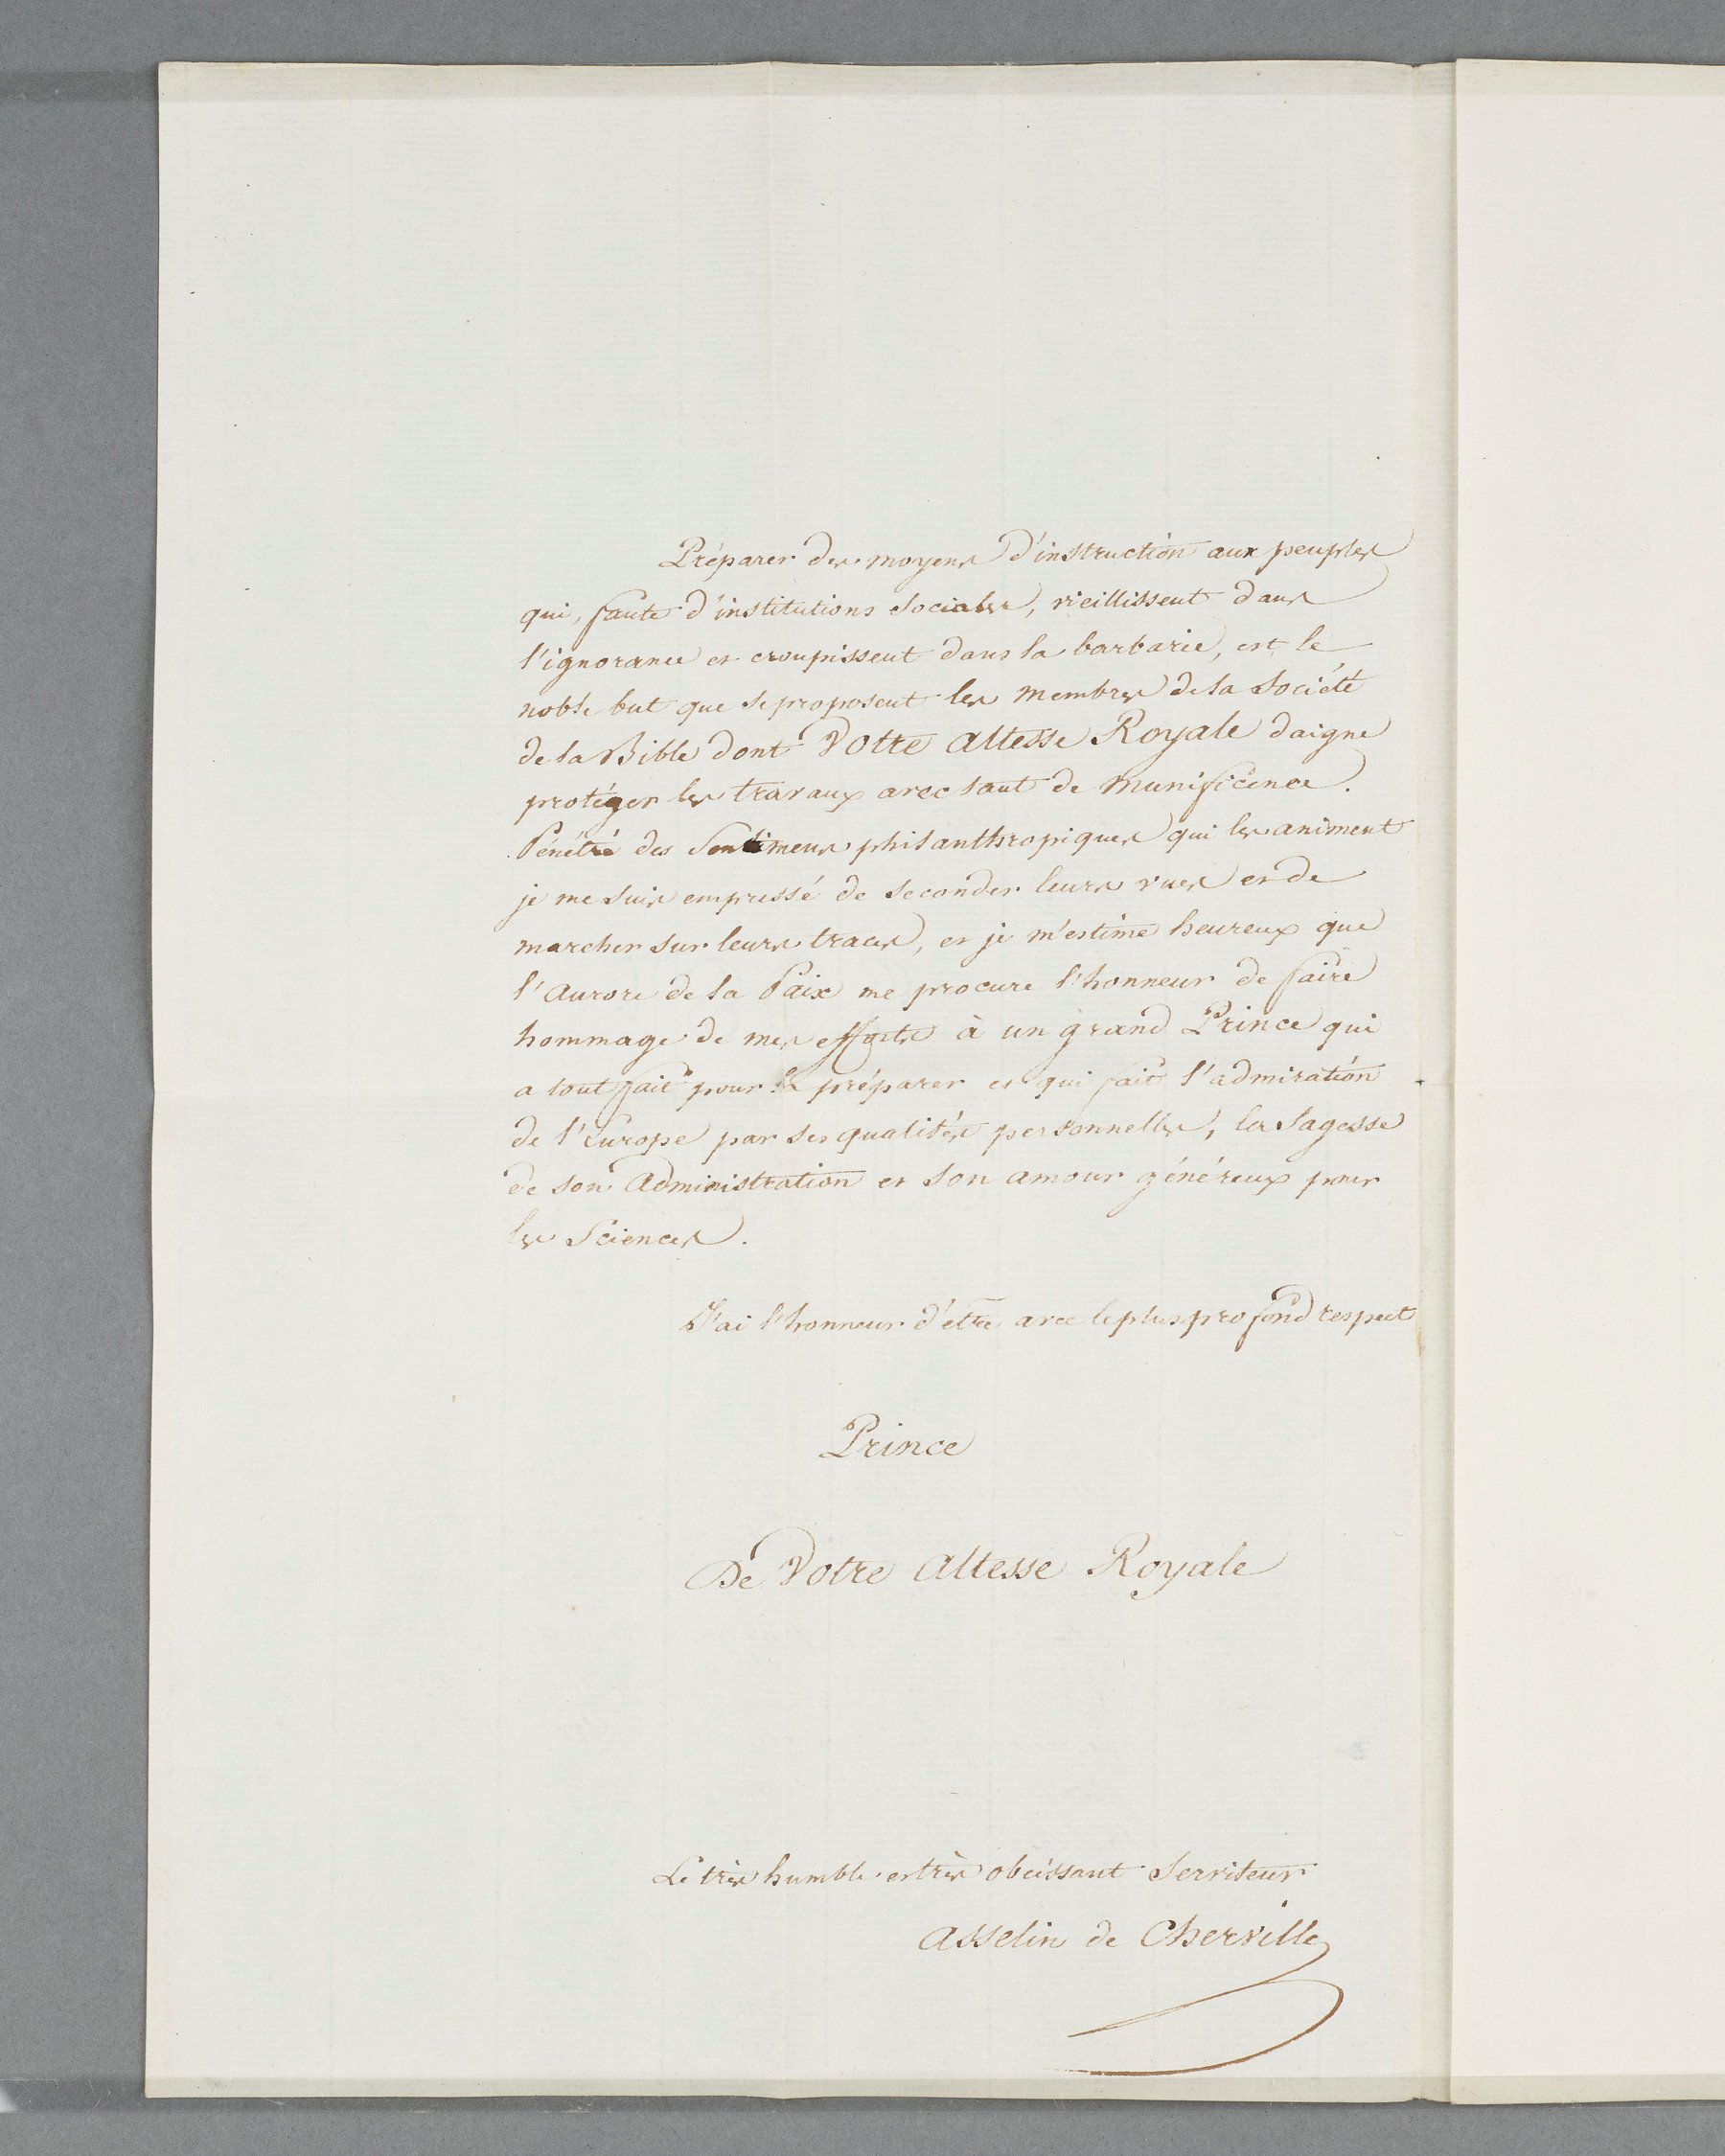 Préparer des moyens d'instruction aux peuples
qui, faute d'institutions sociales, vieillissent dans
l'ignorance et croupissent dans la barbarie, est le
noble but que se proposent les membres de la Société
de la Bible dont Votre Altesse Royale daigne
protéger les travaux avec tant de munificence.
Pénétré des Sentimens philanthropiques qui les animent
je me suis empressé de seconder leurs vues et de
marcher sur leurs traces, et je m'estime heureux que
l'Aurore de la Paix me procure l'honneur de faire
hommage de mes efforts à un grand Prince qui
a tout fait pour la préparer et qui fait l'admiration
de l'Europe par ses qualités personnelles, la Sagesse
de son Administration et son amour généreux pour
les Sciences.
J'ai l'honneur d'être avec le plus profond respect
Prince
De Votre Altesse Royale
Le très humble et très obéissant Serviteur
Asselin de Cherville